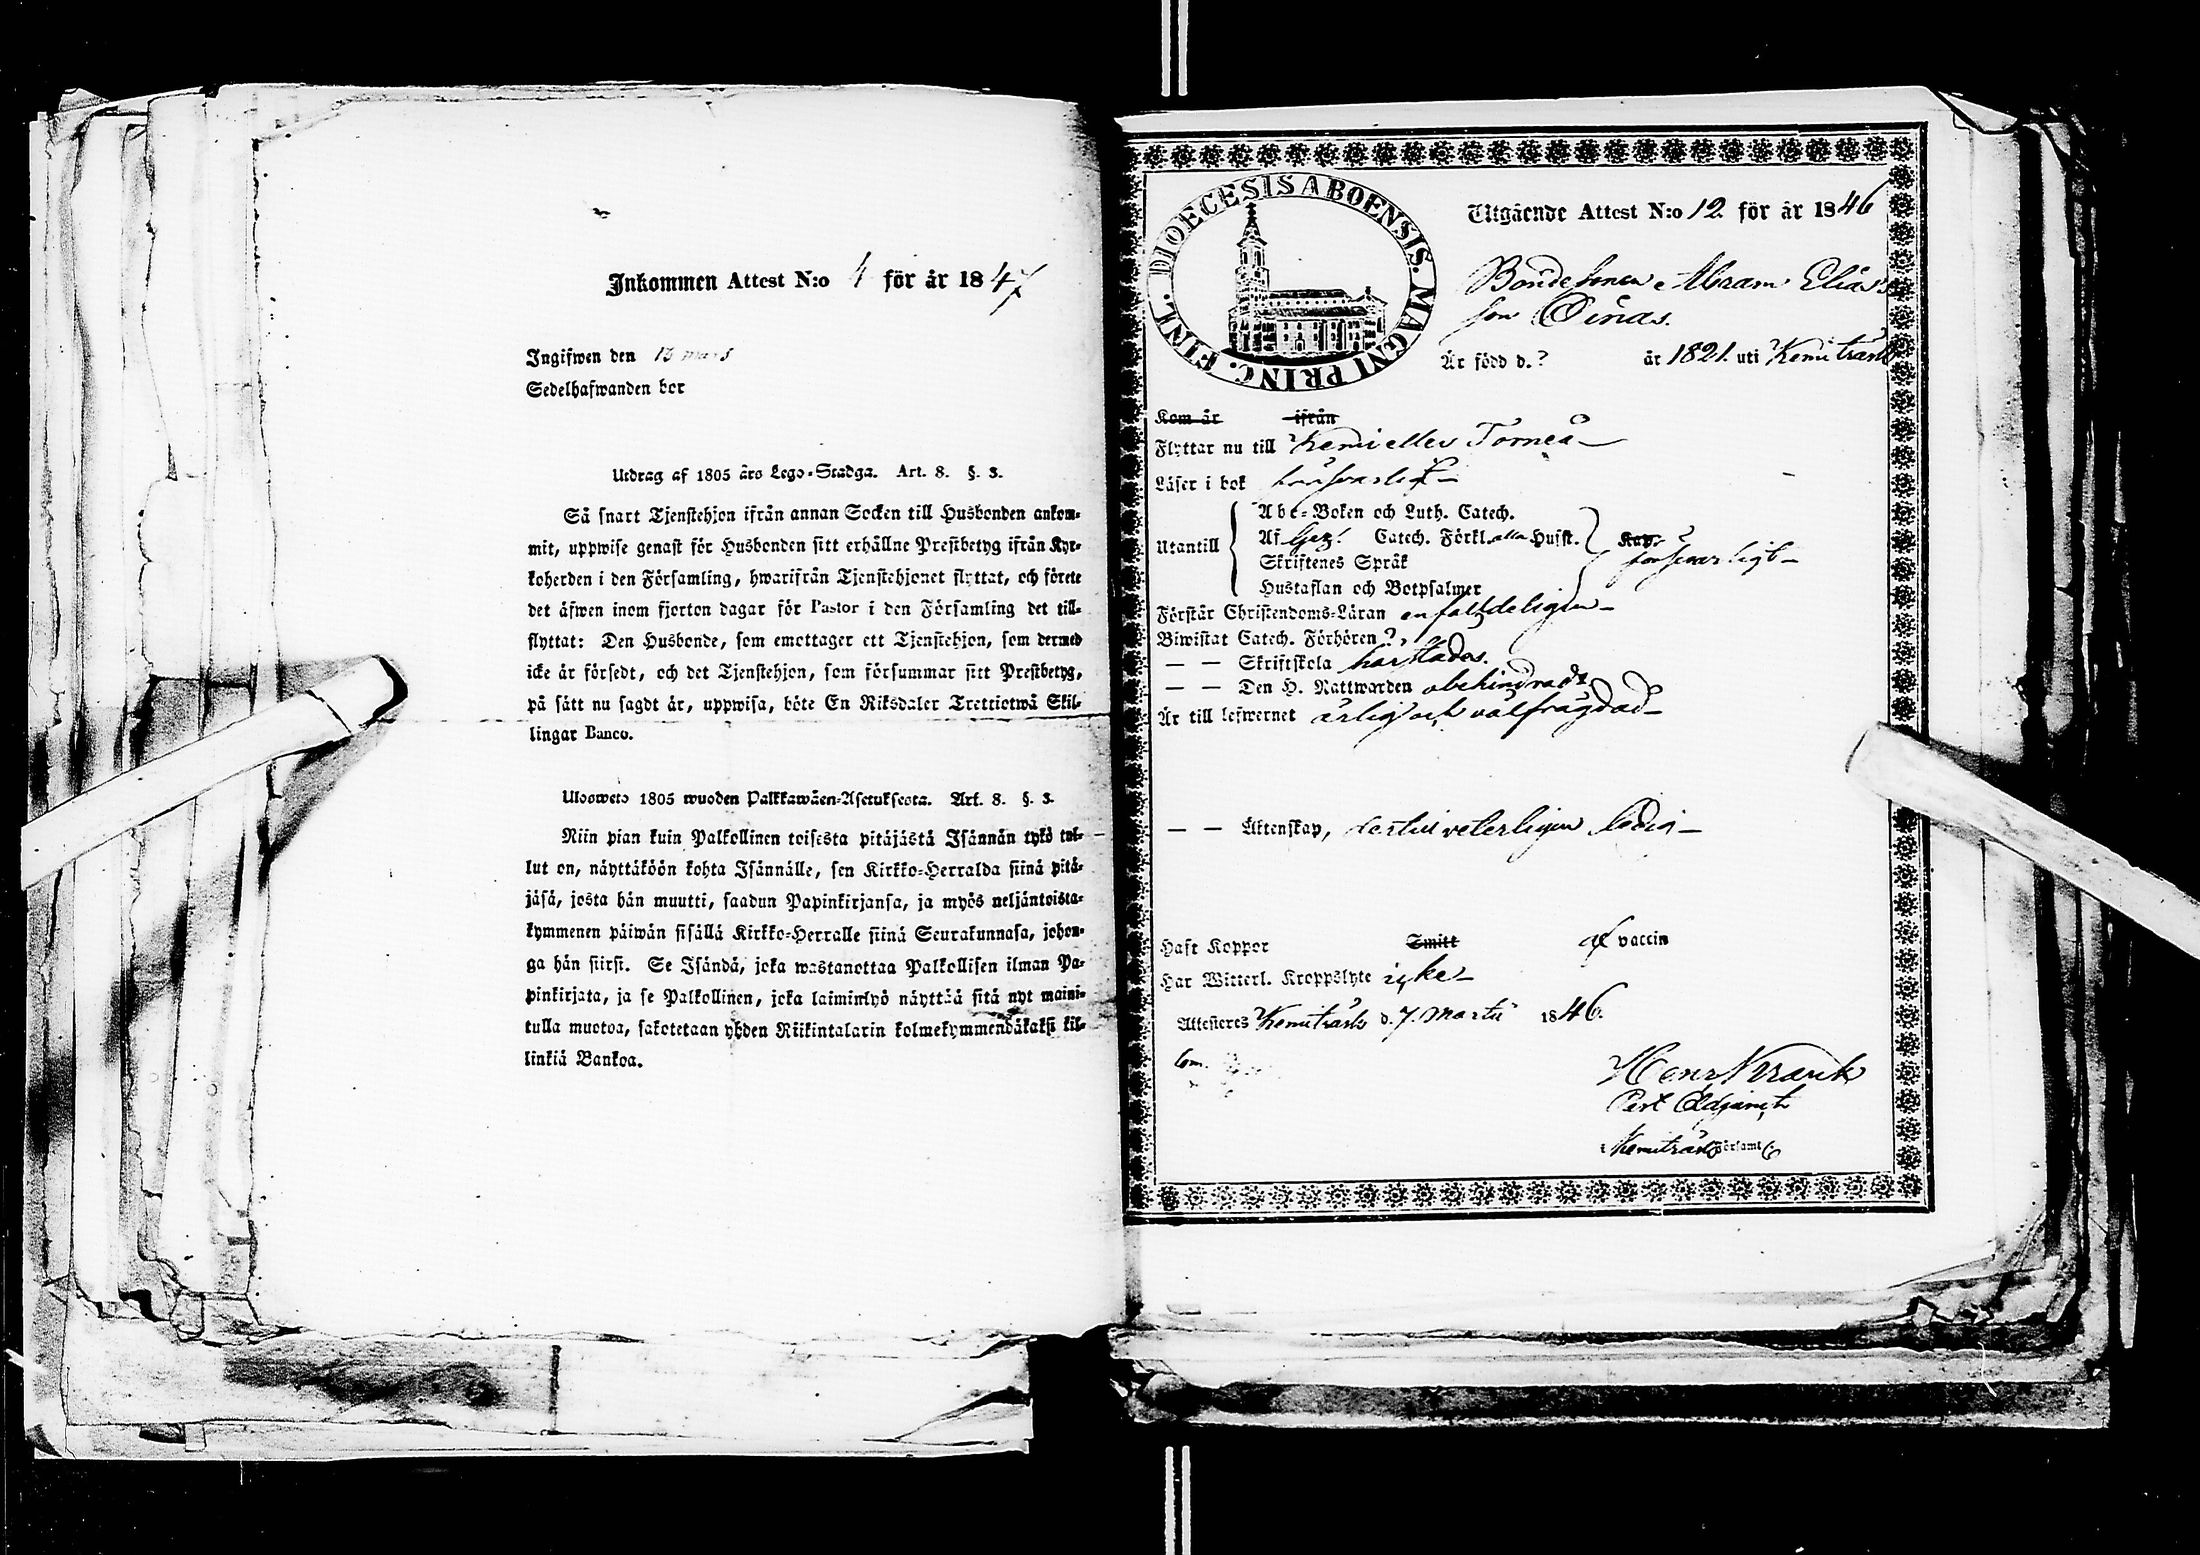 Inkommen Attest N:o 4 för år 1847
Ingifwen den 13 mars
Sedelhafwanden bor
Utdrag af 1805 års Lego-Stadga. Art. 8. §. 3.
Så snart Tjenstehjon ifrån annan Socken till Husbonden ankom-
mit, uppwise genast för Husbonden sitt erhållne Prestbetyg ifrån Kyr-
koherden i den Församling, hwarifrån Tjenstehjonet flyttat, och förete
det äfwen inom fjorton dagar för Pastor i den Församling det till-
flyttat: Den Husbonde, som emottager ett Tjenstehjon, som dermed
icke är försedt, och det Tjenstehjon, som försummar sitt Prestbetyg,
på sätt nu sagdt är, uppwisa, böte En Riksdaler Trettiotwå Skil-
lingar Banco.
Ulosweto 1805 wuoden Palkkawäen-Asetuksesta. Art. 8. §. 3.
Niin pian kuin Palkollinen toisesta pitäjästä Isännän tykö tul-
lut on, näyttäköön kohta Isännälle, sen Kirkko-Herralda siinä pitä-
jäsä, josta hän muutti, saadun Papinkirjansa, ja myös neljäntoista-
kymmenen päiwän sisällä Kirkko-Herralle siinä Seurakunnasa, johon-
ga hän siirsi. Se Isändä, joka wastanottaa Palkollisen ilman Pa-
pinkirjata, ja se Palkollinen, joka laiminlyö näyttää sitä nyt maini-
tulla muotoa, sakotetaan yhden Riikintalarin kolmekymmendäkaksi kil-
linkiä Bankoa.
DIOECESIS ABOENSIS. MAGNI PRINC. FINL.
Utgående Attest N:o 12 för år 1846
Bondesonen Abram Elias
son Oinas.
Är född d. ? år 1821. uti Kemiträsk
Kom år ifrån
Flyttar nu till Kemi eller Torneå
Läser i bok försvarligt
Abc-Boken och Luth. Catech.
Utantill Af Catech. Förkl. Husst.
försvarligt
Skriftenes Språk
Hustaflan och Botpsalmer
Förstår Christendoms-Läran enfaldeligen
Biwistat Catech. Förhören ?
— — Skriftskola
— — Den H. Nattwarden obehindrad
Är till lefwernet ärlig och välfrägdad
— — Äktenskap, ledig
Haft Koppor Smitt af vaccin
Har Witterl. Kroppslyte icke
Attesteres Kemiträsk d. 7. Martii 1846.
Henr Wranck
Past Adjunct
i Kemiträsk Församl:g